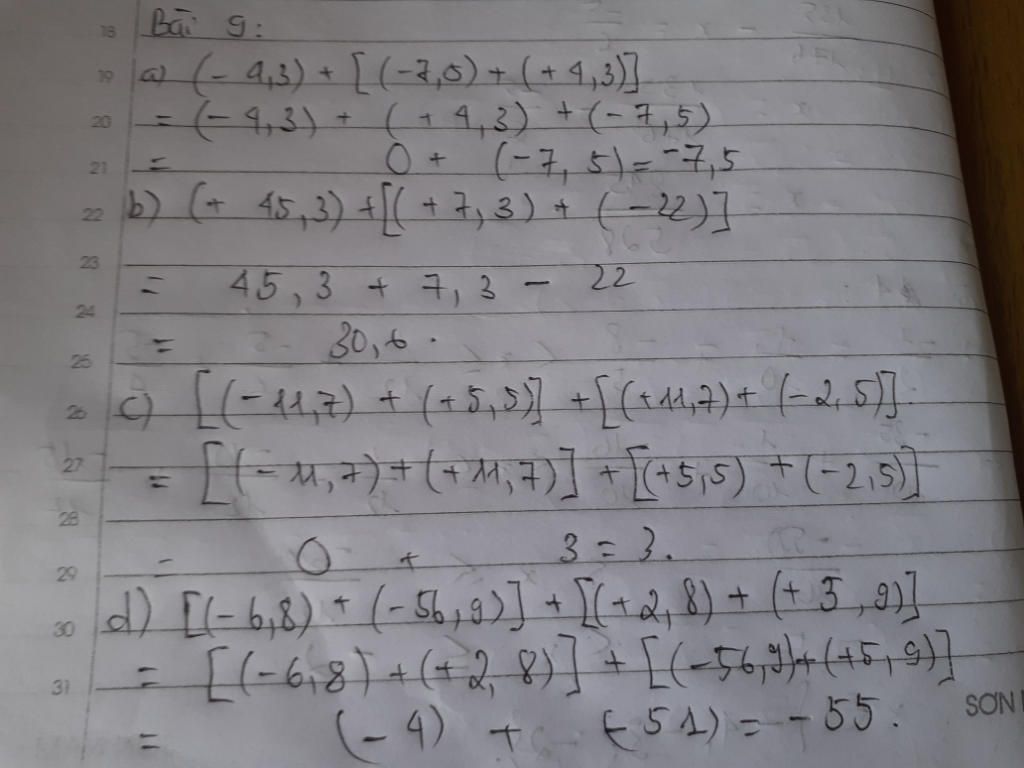 18 Bài 9:
19 a) (- 4,3) + [(-7,5) + (+ 4,3)]
20 = (- 4,3) + (+ 4,3) + (- 7,5)
21 = 0 + (-7, 5) = -7,5
22 b) (+ 45,3) + [(+7,3) + (-22)]
23 = 45,3 + 7,3 - 22
24 = 30,6.
25 c) [(-11,7) + (+5,5)] + [(+11,7) + (-2,5)]
26
27 = [(-11,7) + (+11,7)] + [(+5,5) + (-2,5)]
28 - 0 + 3 = 3.
29 d) [(-6,8) + (-56,9)] + [(+2,8) + (+5,9)]
30 = [(-6,8) + (+2,8)] + [(-56,9) + (+5,9)]
31 = (-4) + (-51) = - 55.
SƠN